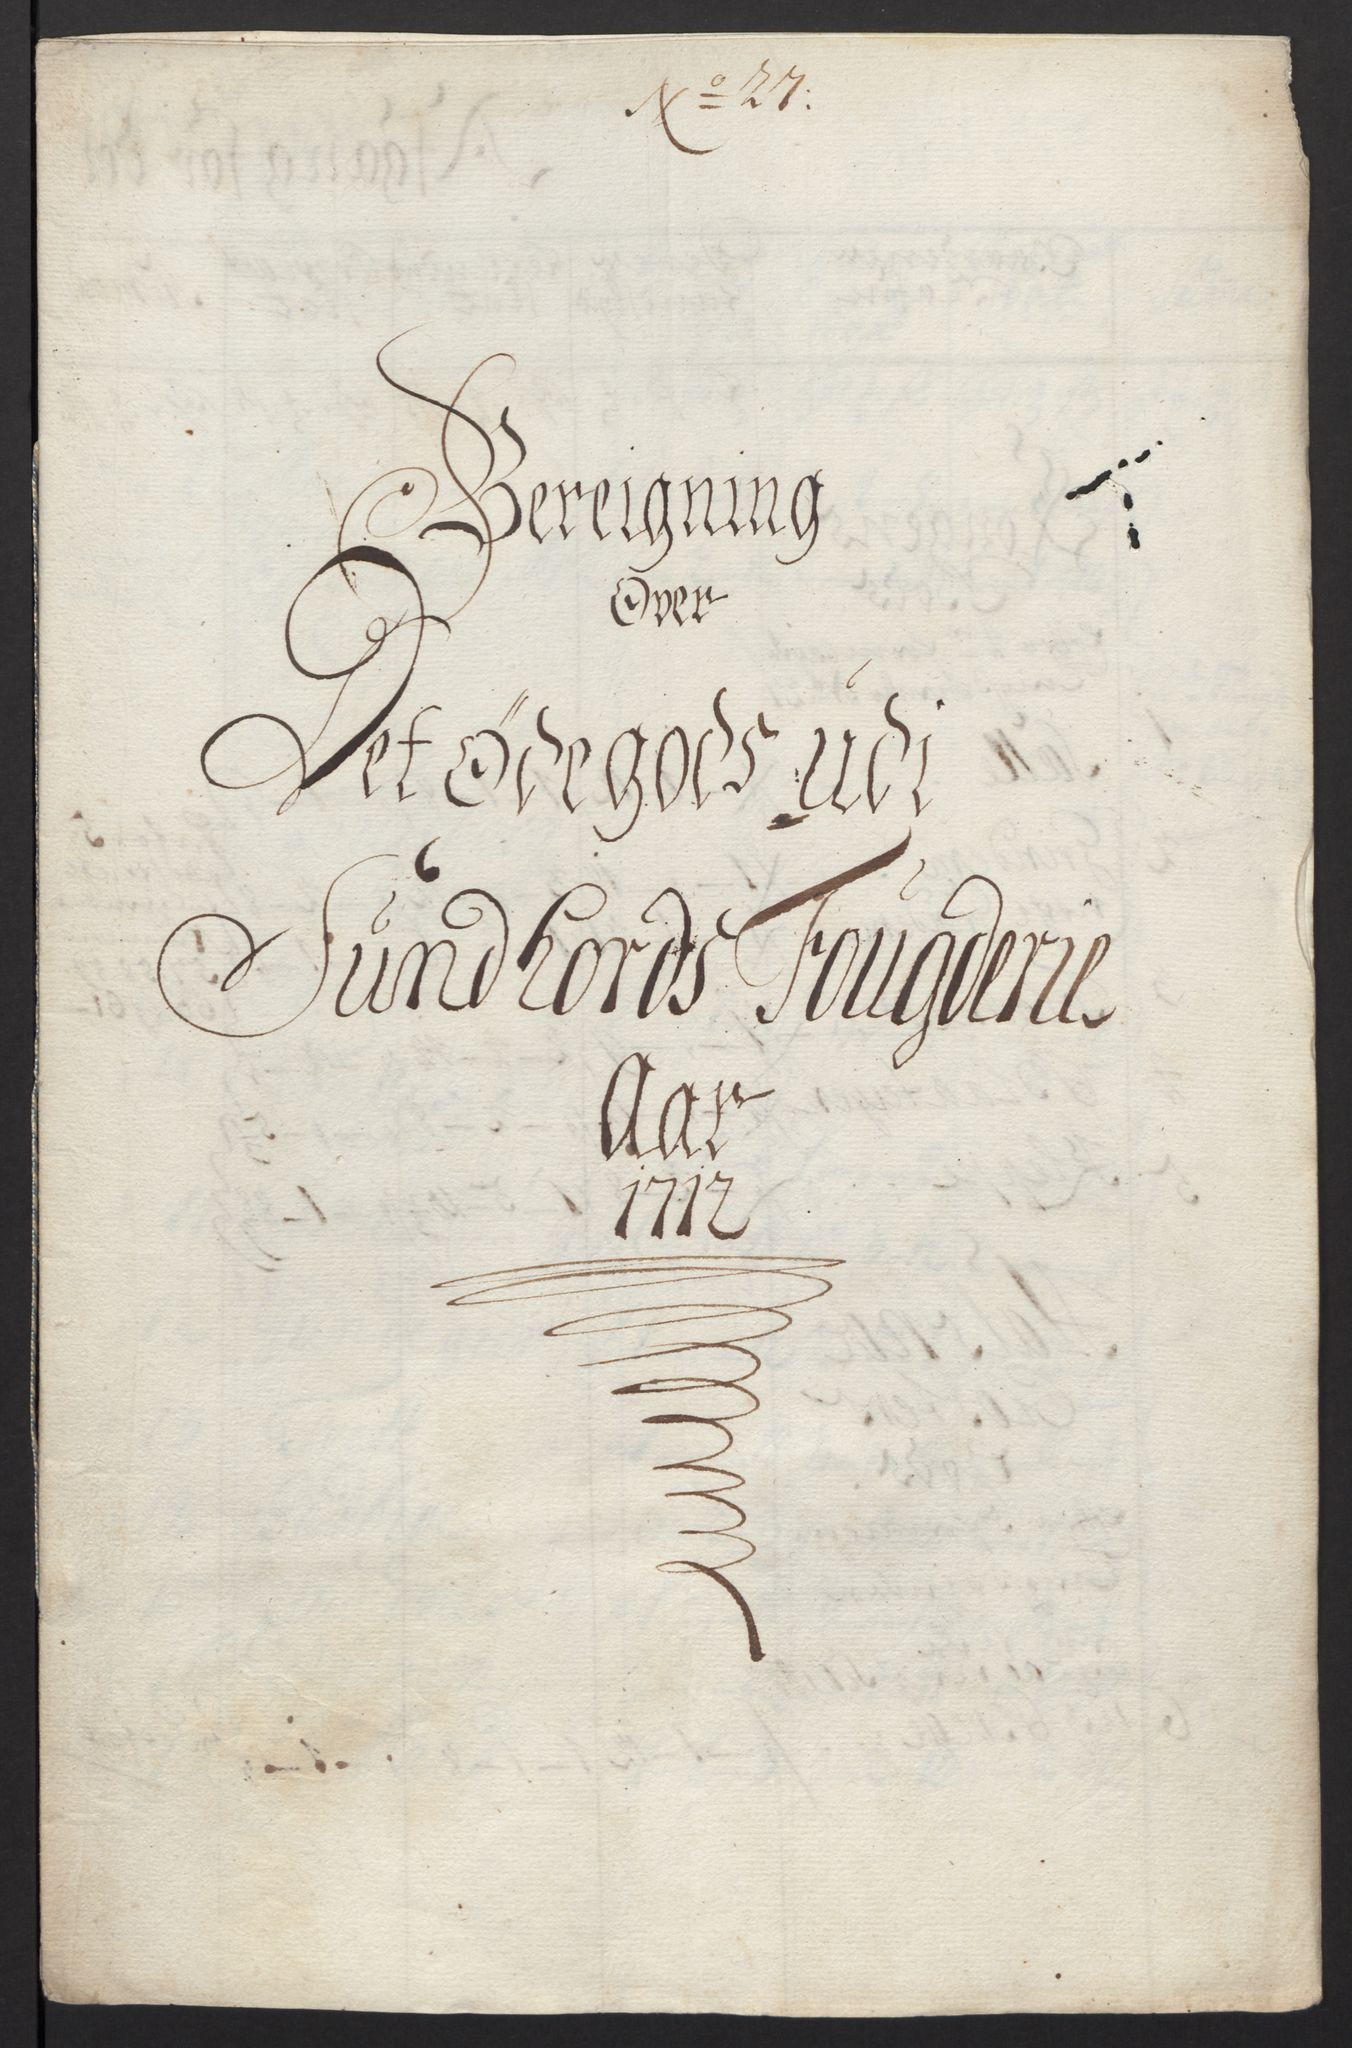 No 27:
Bereigning
Over
Det Ödegods udi
Sundhords Fougderie
Aar
1712